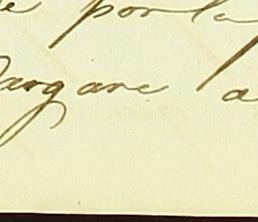 e por la
argare a